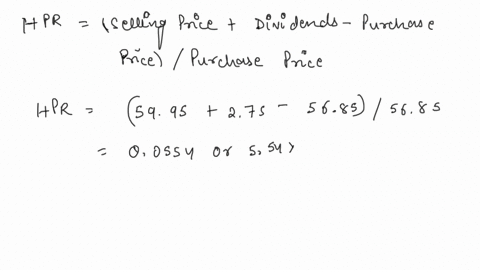 HPR = (Selling Price + Dividends - Purchase
Price) / Purchase Price
HPR = (59.95 + 2.75 - 56.85) / 56.85
= 0.0554 or 5.54%